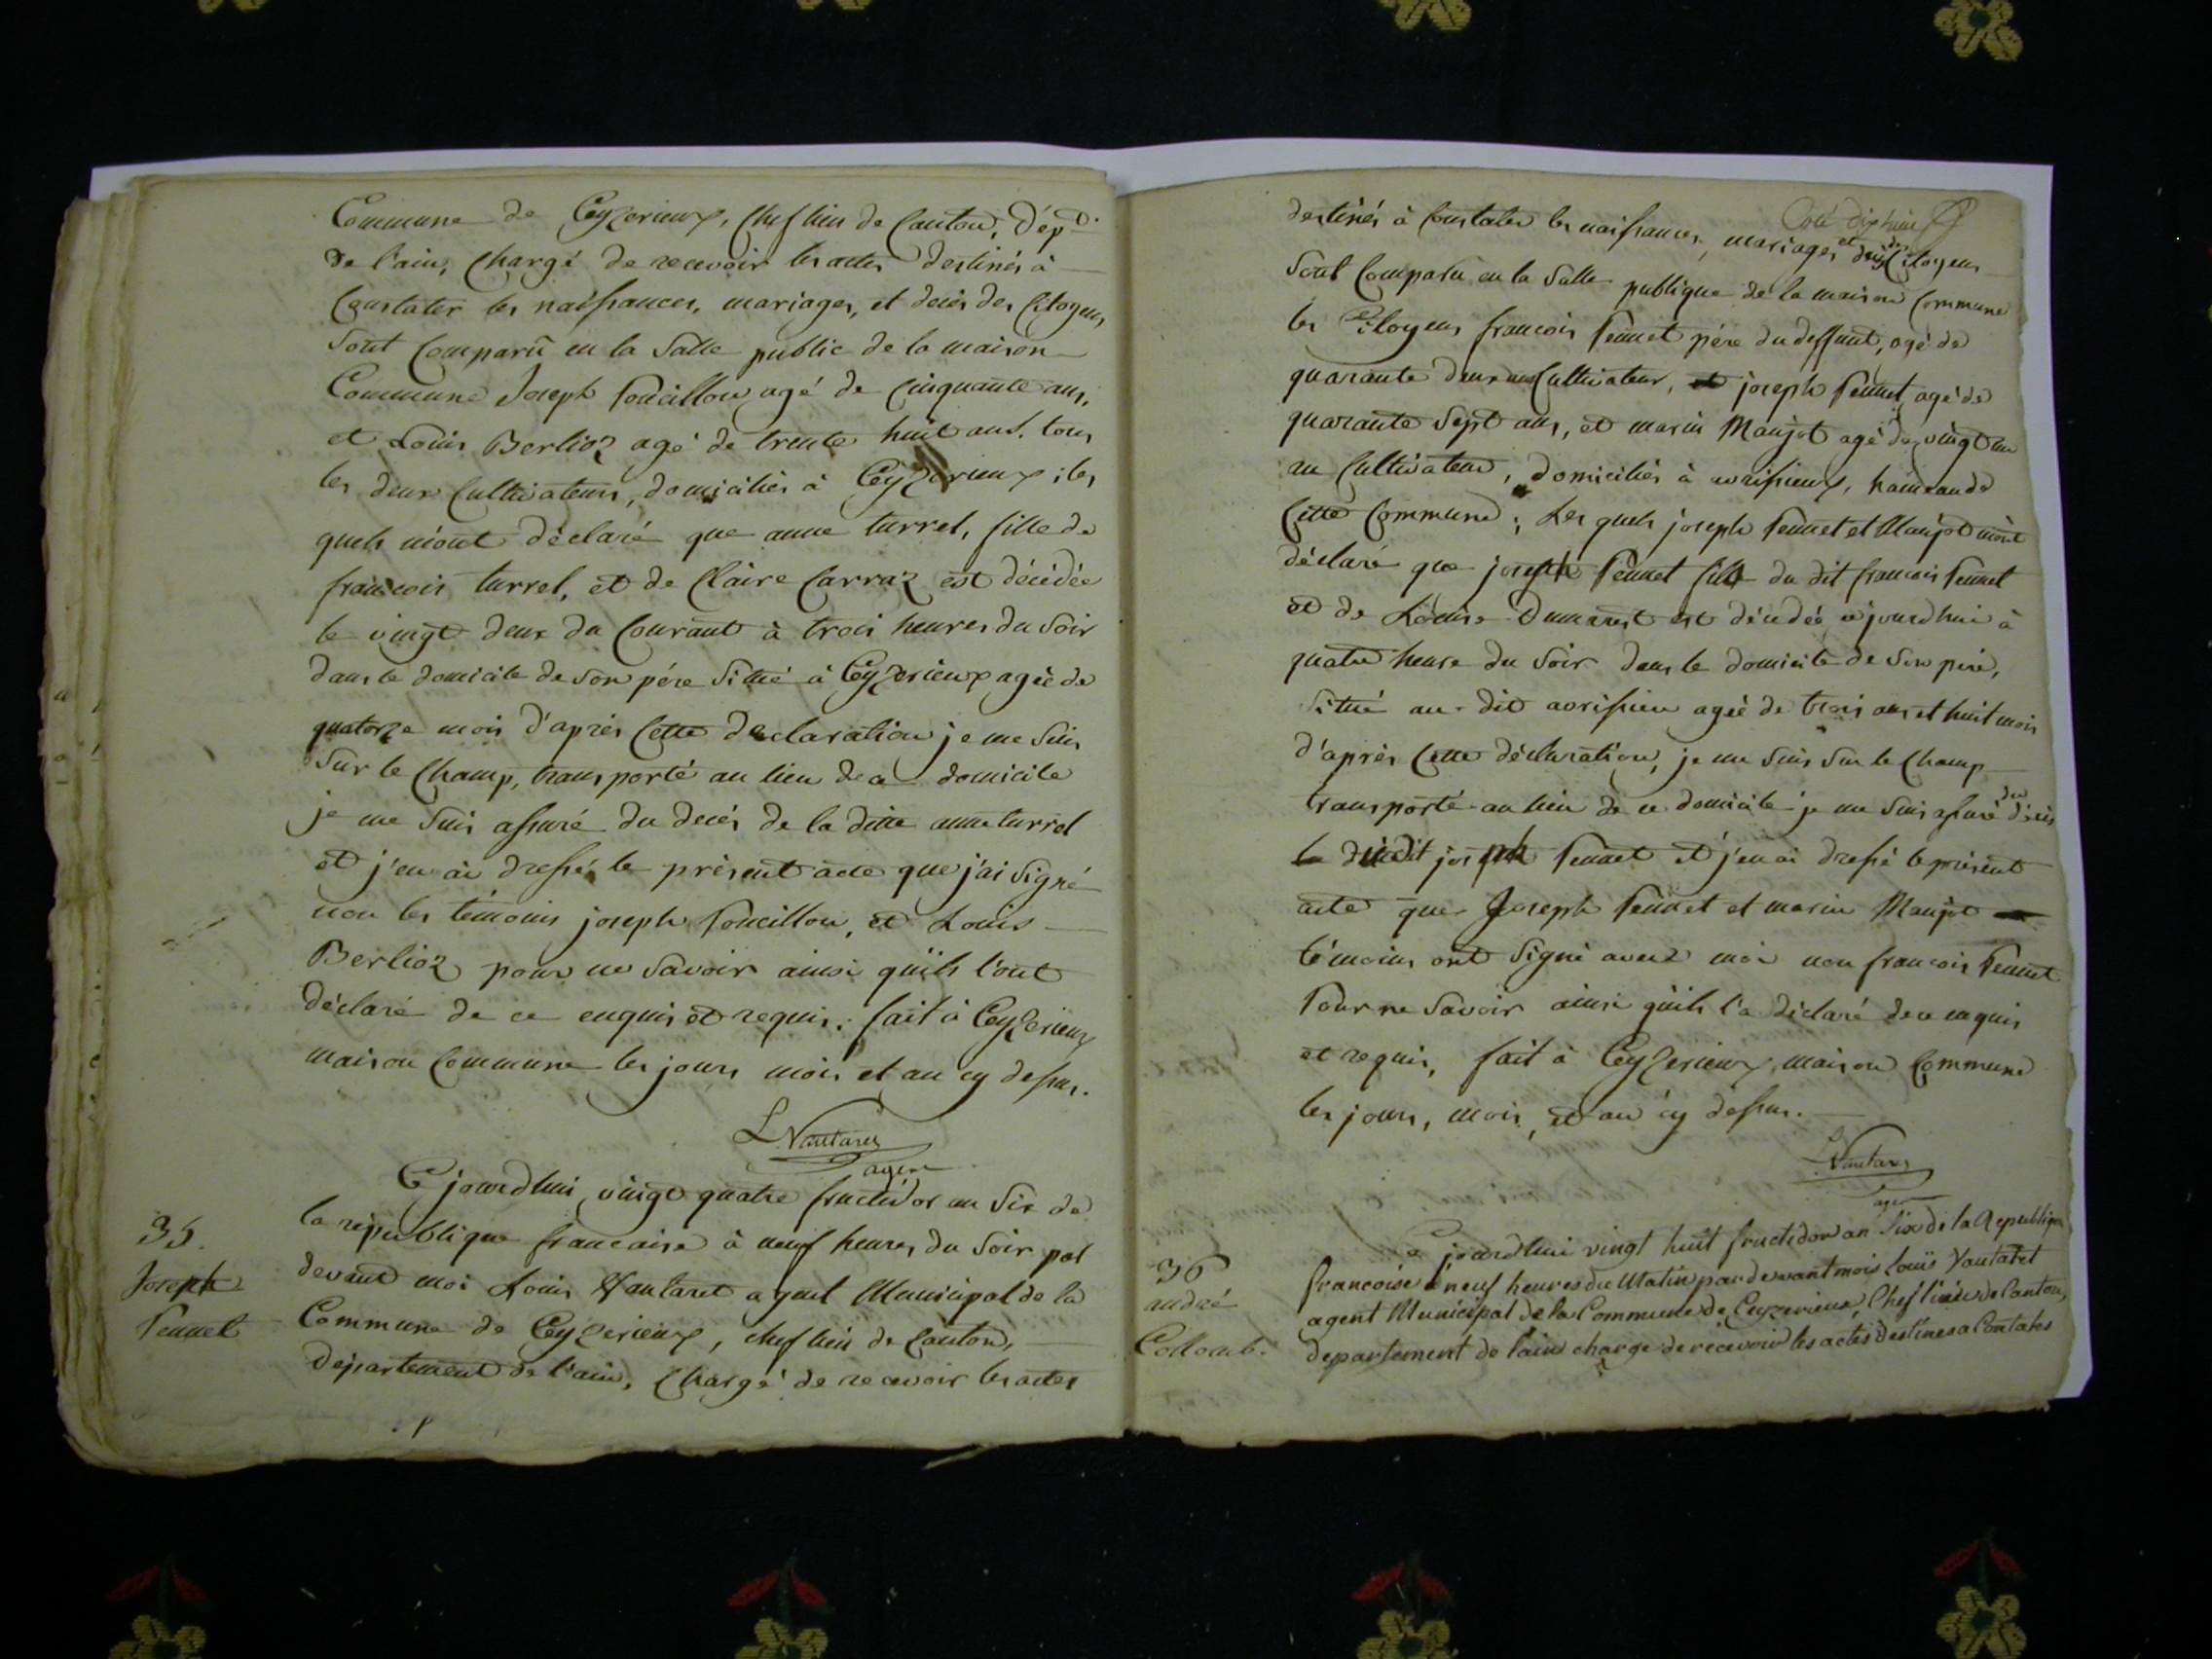 Commune de Ceyzerieux, Chef lieu de Canton, Dépt.
de l'ain, Chargé de recevoir les actes destinés à
Constater les naissances, mariages, et decès des Citoyens
Sont Comparû en la Salle public de la maison
Commune Joseph Poncillon agé de Cinquante ans,
et Louis Berlioz agé de trente huit ans. tous
les deux Cultivateurs, domiciliés à Ceyzerieux ; les
quels m'ont déclaré que anne turrel, fille de
francois turrel, et de Claire Carraz est décédée
le vingt deux du Courant à trois heures du Soir
dans le domicile de son pére Sitüé à Ceyzerieux agée de
quatorze mois d'après Cette declaration je me Suis
Sur le Champ, transporté au lieu de ce domicile
je me Suis assuré du decès de la ditte anne turrel
et j'en ai dressé le présent acte que j'ai Signé
non les témoins joseph Poncillon, et Louis
Berlioz pour ne Savoir ainsi qu'ils l'ont
déclaré de ce enquis et requis. fait à Ceyzerieux
maison Commune les jours mois et an cy dessus.
L Vantaret
agent
35.
Joseph
Pennet
Cejourdhui vingt quatre fructidor an Six de
la république francaise à neuf heures du Soir par
devant moi Louis Vantaret agent Municipal de la
Commune de Ceyzerieux, chef lieu de Canton,
département de l'ain, Chargé de recevoir les actes
Coté dix huit
destinés à Constater les naissances, mariages et decès des Citoyens
Sont Comparû en la Salle publique de la maison Commune
les Citoyens francois Pennet pére du deffunt, agé de
quarante deux ans Cultivateur, et joseph Pennet agé de
quarante Sept ans, et marin Manjot agé de vingt un
an Cultivateur, domiciliés à avrissieux, hameau de
Cette Commune ; Les quels joseph Pennet et Manjot m'ont
déclaré que joseph Pennet fils du dit francois Pennet
et de Louise Dumarest est décédé cejourdhui à
quatre heure du Soir dans le domicile de Son pére,
Sitüé au dit avrissieu agée de trois ans et huit mois
d'après Cette déclaration, je me Suis Sur le Champ
transporté au lieu de ce domicile je me Suis assuré du décès
dudit joseph Pennet et j'en ai dressé le présent
acte que Joseph Pennet et marin Manjot
témoins ont Signé avec moi non francois Pennet
Pour ne Savoir ainsi qu'ils l'a déclaré de ce enquis
et requis, fait à Ceyzerieux maison Commune
les jours, mois, et an cy dessus.
L Vantaret
agent
36
andré
Collomb.
Ce jourdhui vingt huit fructidor an Six de la Republique
francoise à neuf heures du Matin par devant mois Louis Vantaret
agent Municipal de la Commune de Ceyzerieux, Chef lieu de Canton,
departement de l'ain charge de recevoir les actes destines a Contates